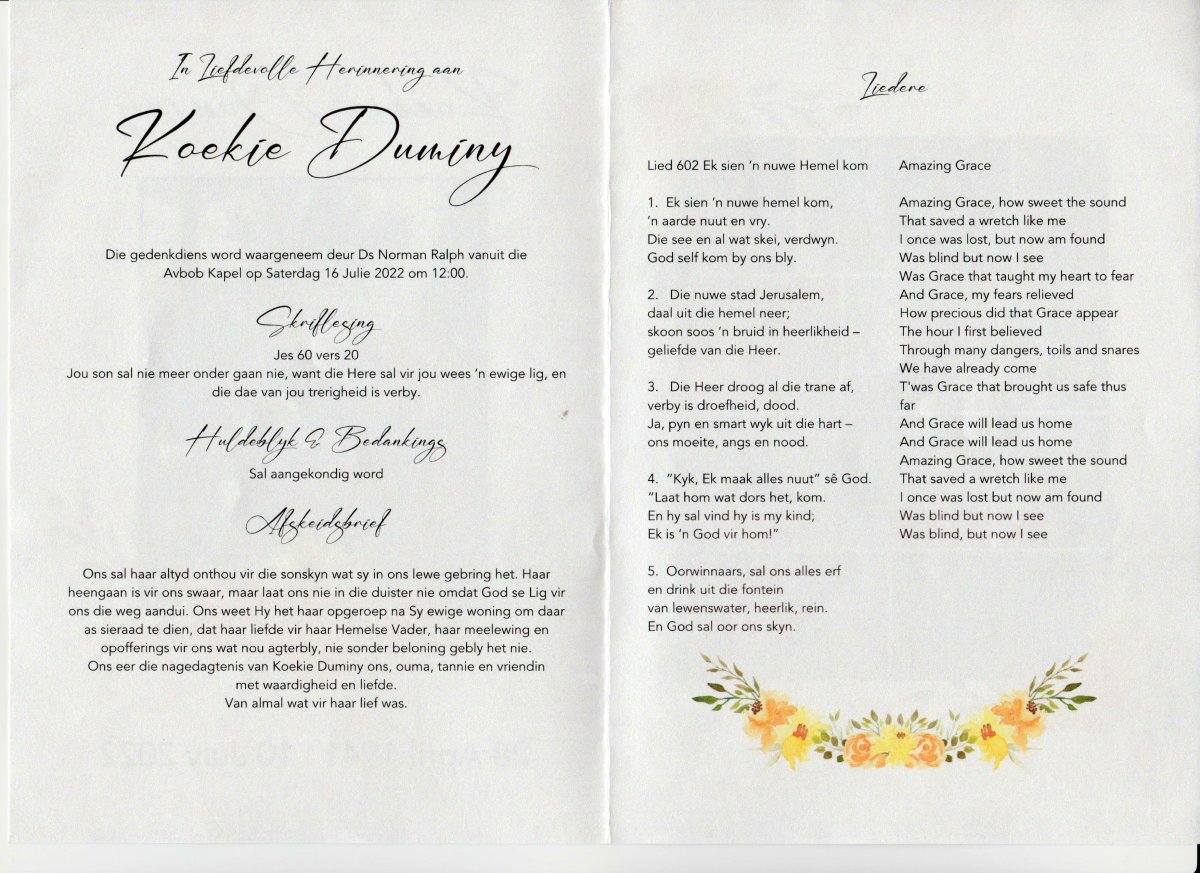 In Liefdevolle Herinnering aan
Koekie Duminy
Die gedenkdiens word waargeneem deur Ds Norman Ralph vanuit die
Avbob Kapel op Saterdag 16 Julie 2022 om 12:00.
Skriflesing
Jes 60 vers 20
Jou son sal nie meer onder gaan nie, want die Here sal vir jou wees ‘n ewige lig, en
die dae van jou trerigheid is verby.
Huldeblyk & Bedankings
Sal aangekondig word
Afskeidsbrief
Ons sal haar altyd onthou vir die sonskyn wat sy in ons lewe gebring het. Haar
heengaan is vir ons swaar, maar laat ons nie in die duister nie omdat God se Lig vir
ons die weg aandui. Ons weet Hy het haar opgeroep na Sy ewige woning om daar
as sieraad te dien, dat haar liefde vir haar Hemelse Vader, haar meelewing en
opofferings vir ons wat nou agterbly, nie sonder beloning gebly het nie.
Ons eer die nagedagtenis van Koekie Duminy ons, ouma, tannie en vriendin
met waardigheid en liefde.
Van almal wat vir haar lief was.
Liedere
Lied 602 Ek sien ‘n nuwe Hemel kom
1. Ek sien ‘n nuwe hemel kom,
‘n aarde nuut en vry.
Die see en al wat skei, verdwyn.
God self kom by ons bly.
2. Die nuwe stad Jerusalem,
daal uit die hemel neer;
skoon soos ‘n bruid in heerlikheid –
geliefde van die Heer.
3. Die Heer droog al die trane af,
verby is droefheid, dood.
Ja, pyn en smart wyk uit die hart –
ons moeite, angs en nood.
4. “Kyk, Ek maak alles nuut” sê God.
“Laat hom wat dors het, kom.
En hy sal vind hy is my kind;
Ek is ‘n God vir hom!”
5. Oorwinnaars, sal ons alles erf
en drink uit die fontein
van lewenswater, heerlik, rein.
En God sal oor ons skyn.
Amazing Grace
Amazing Grace, how sweet the sound
That saved a wretch like me
I once was lost, but now am found
Was blind but now I see
Was Grace that taught my heart to fear
And Grace, my fears relieved
How precious did that Grace appear
The hour I first believed
Through many dangers, toils and snares
We have already come
T'was Grace that brought us safe thus
far
And Grace will lead us home
And Grace will lead us home
Amazing Grace, how sweet the sound
That saved a wretch like me
I once was lost but now am found
Was blind but now I see
Was blind, but now I see